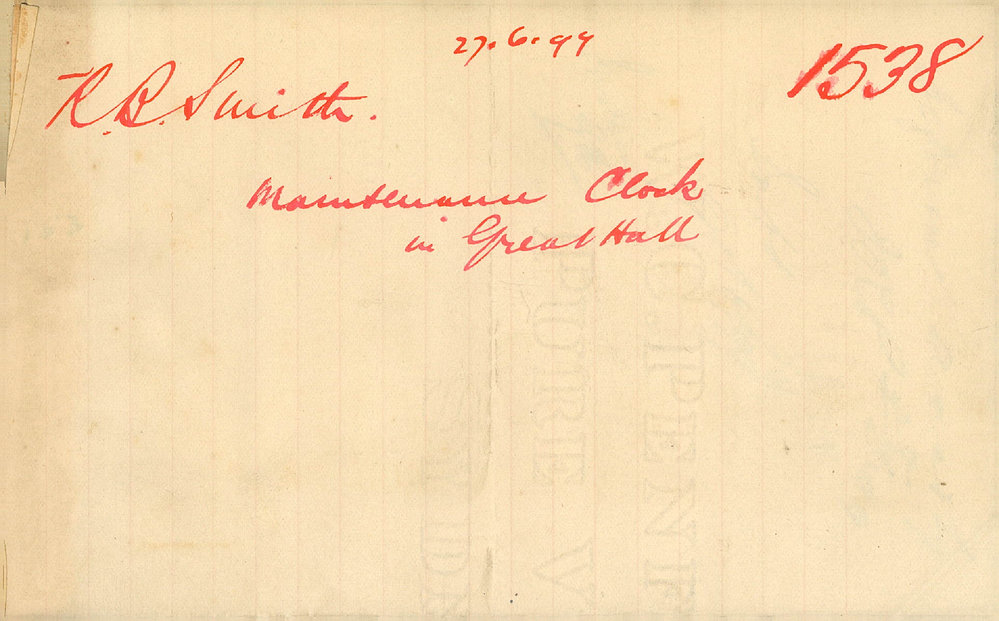 27.6.99
1538
R.B. Smith.
Maintenance Clock
in Great Hall